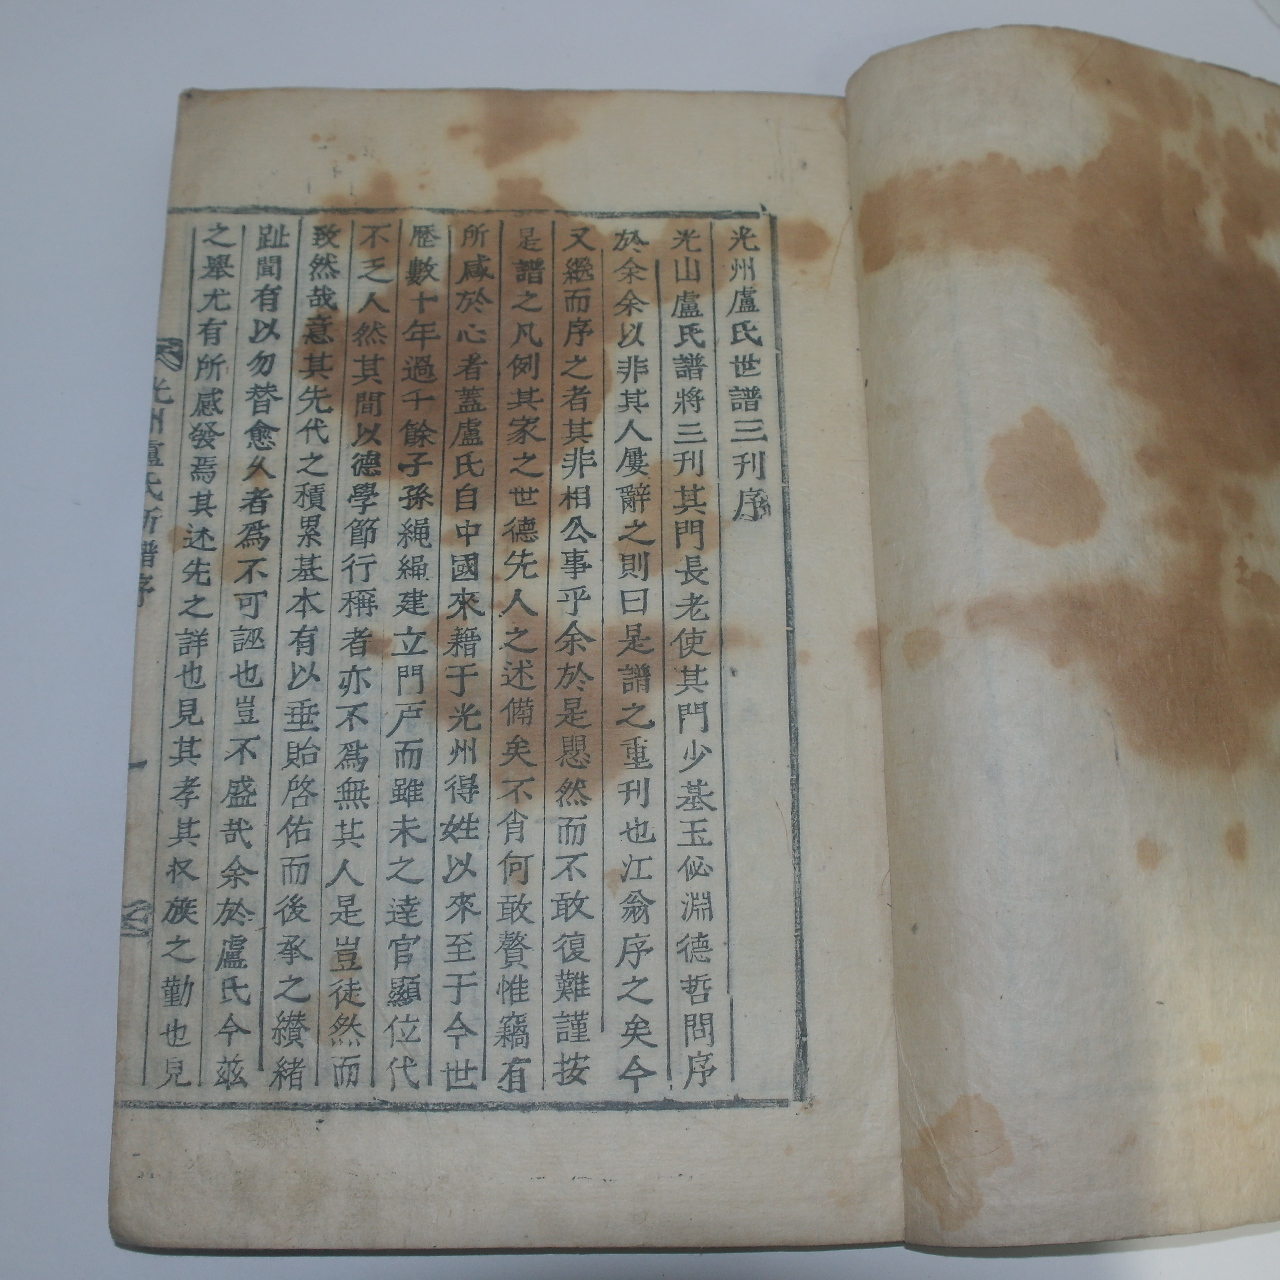 光州盧氏世譜三刊序
光山盧氏譜將三刊其門長老使其門少基玉佖淵德哲問序
於余余以非其人屢辭之則曰是譜之重刊也江翁序之矣今
又繼而序之者其非相公事乎余於是愳然而不敢復難謹按
是譜之凡例其家之世德先人之述備矣不肖何敢贅惟竊有
所感於心者蓋盧氏自中國來籍于光州得姓以來至于今世
歷數十年過千餘子孫繩繩建立門戶而雖未之達官顯位代
不乏人然其間以德學節行稱者亦不爲無其人是豈徒然而
致然哉意其先代之積累基本有以垂貽啓佑而後承之纘緖
趾聞有以勿替愈久者爲不可誣也豈不盛哉余於盧氏今玆
之舉尤有所感發焉其述先之詳也見其孝其收族之勤也見
光州盧氏新譜序
一